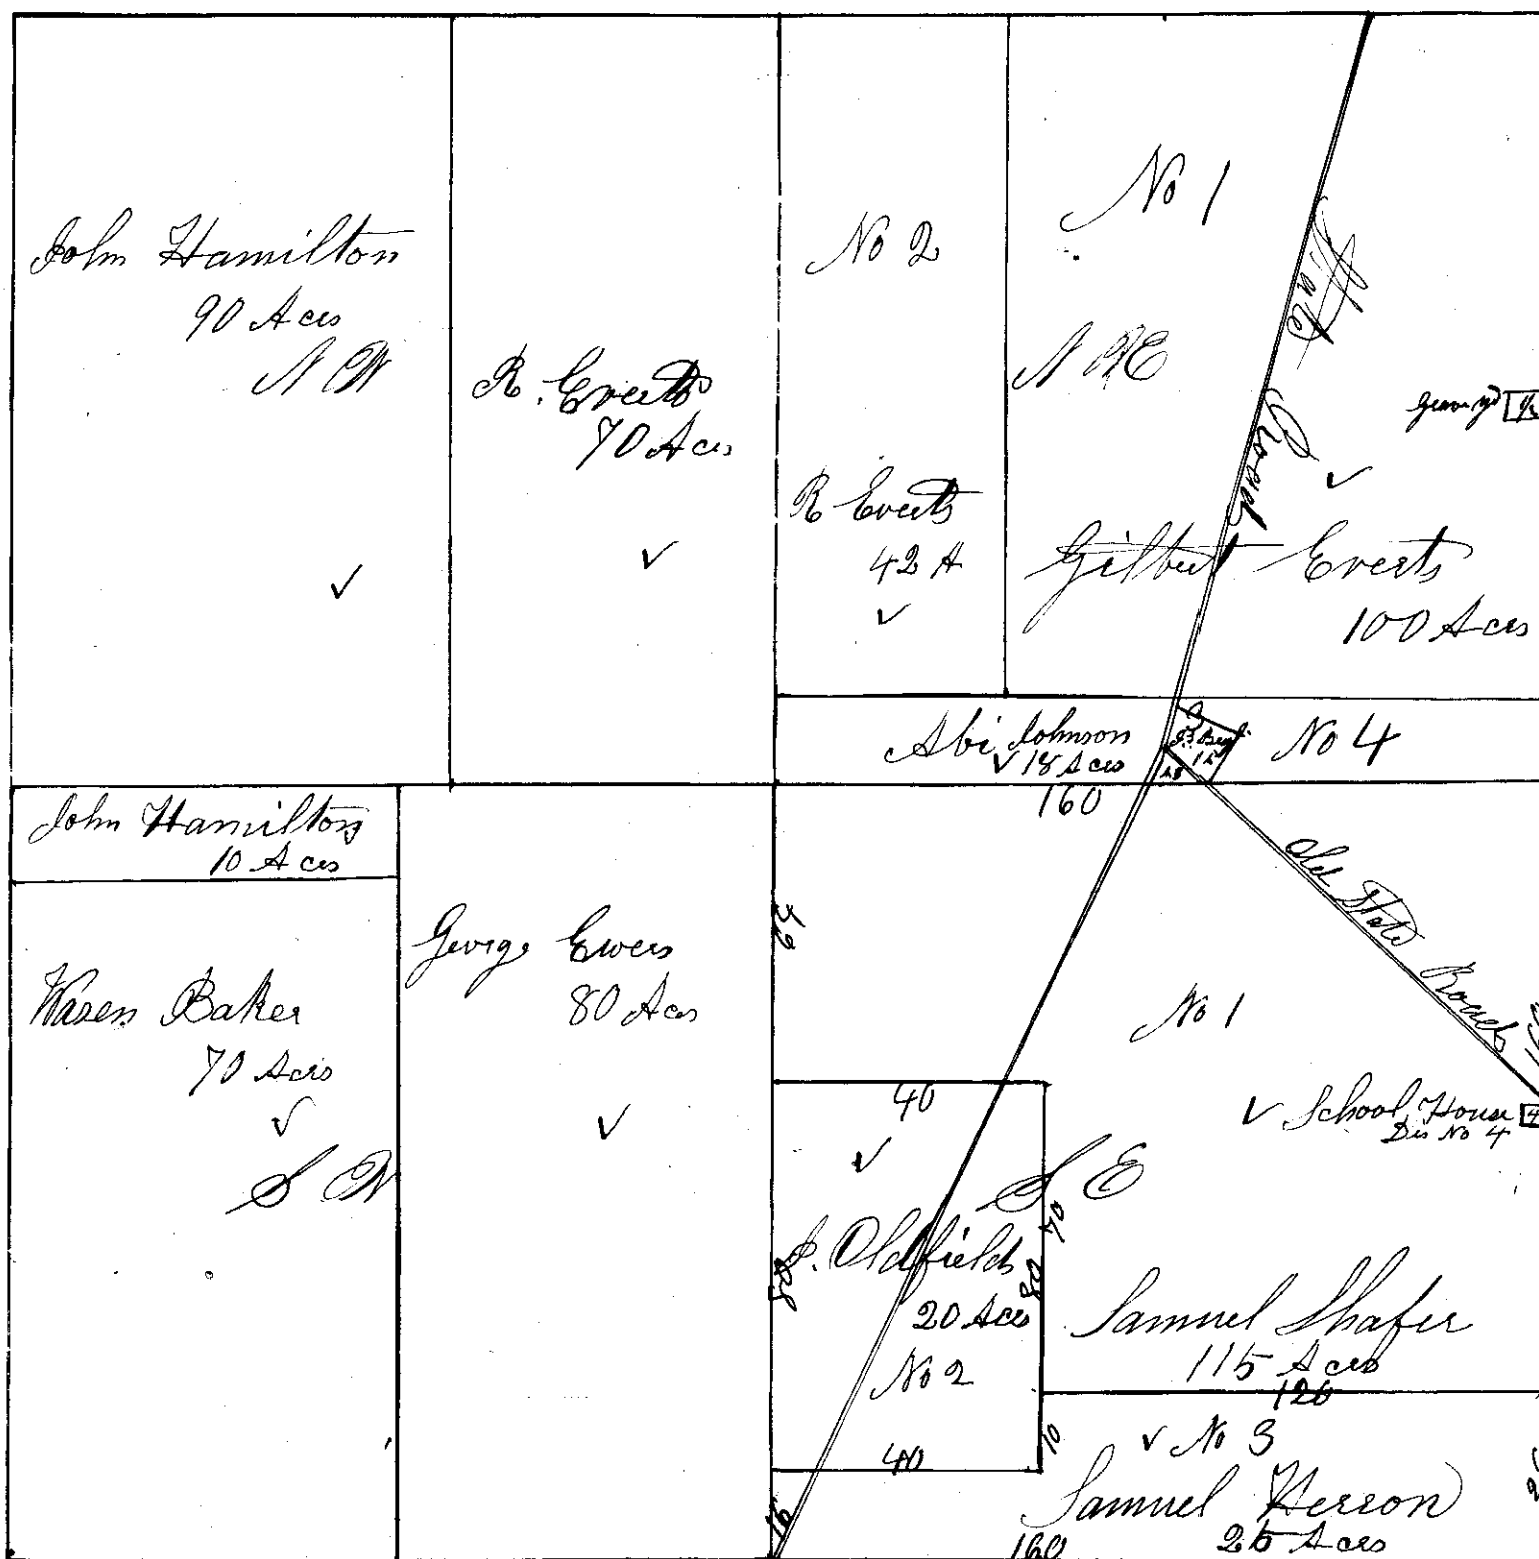 John Hamilton
90 Acrs
N W
R. Everts
70 Acrs
No 2
R Everts
42 A
No 1
N E
State Road
Grave yd
Gilbert Everts
100 Acrs
Abi Johnson
18 Acrs
160
No 4
John Hamilton
10 Acrs
Waren Baker
70 Acrs
S W
George Ewers
80 Acrs
64
Old State Road
No 1
School House
Dis No 4
40
S E
70
80
J. Oldfield
20 Acrs
No 2
40
10
Samuel Shafer
115 Acrs
120
No 3
Samuel Herron
25 Acrs
16
160